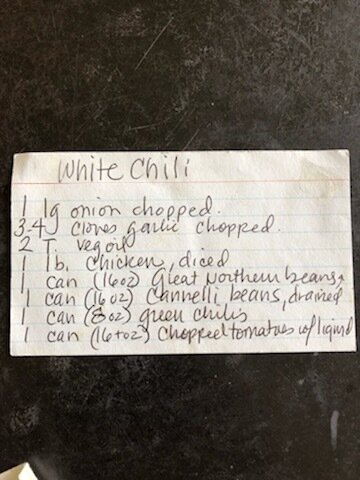 White Chili
1 lg onion chopped.
3-4 cloves garlic chopped.
2 T. veg oil
1 lb. chicken, diced
1 can (16 oz) Great Northern beans
1 can (16 oz) Cannelli beans, drained
1 can (8 oz) green chilis
1 can (16+oz) chopped tomatoes w/ liquid